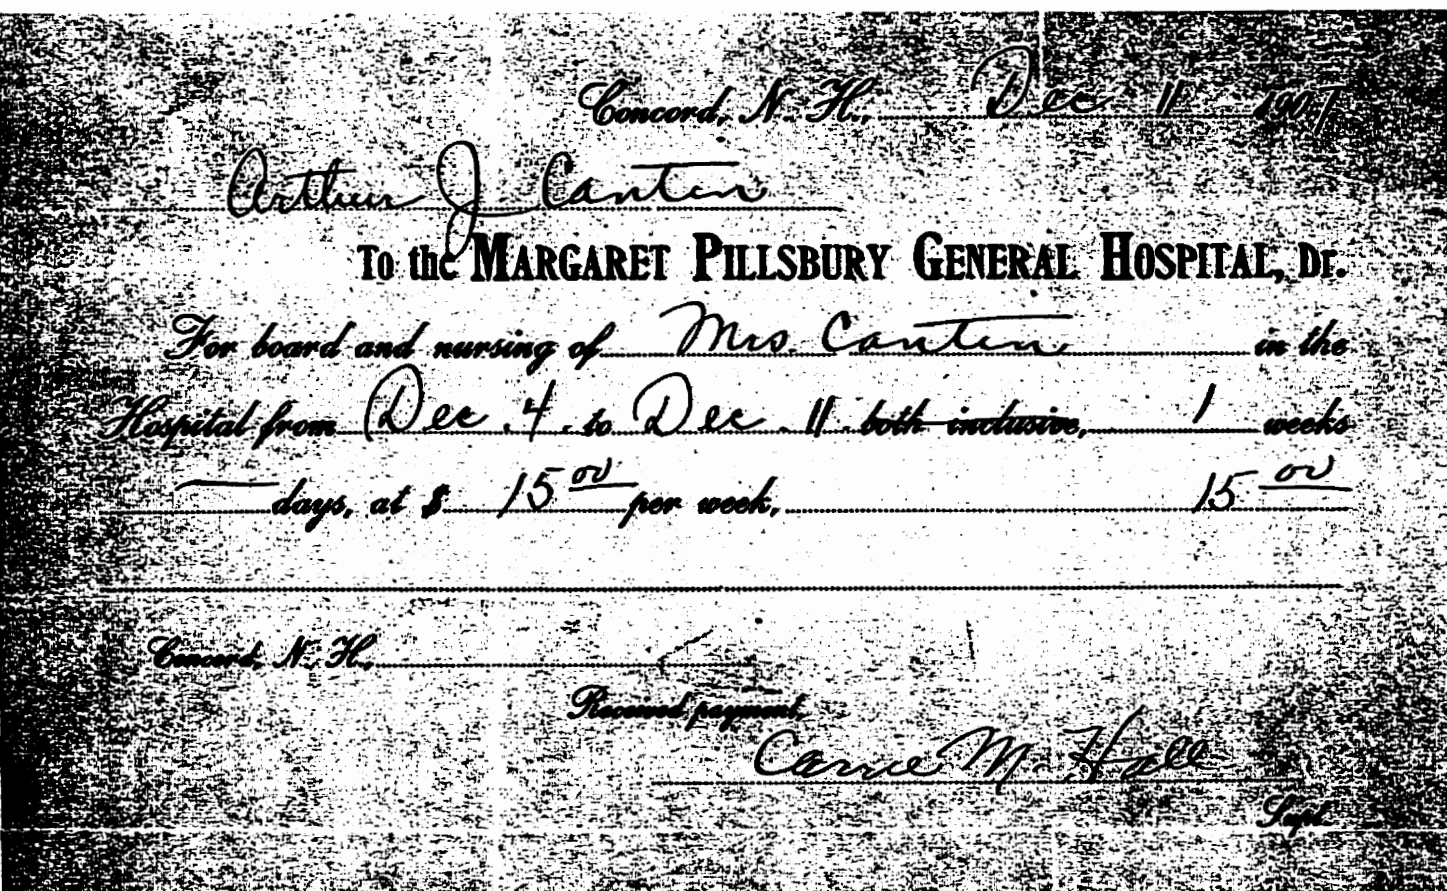 Concord, N. H., Dec 11 1907
Arthur J Canten
To the MARGARET PILLSBURY GENERAL HOSPITAL, Dr.
For board and nursing of Mrs. Canten in the
Hospital from Dec. 4. to Dec. 11. both inclusive, 1 weeks
— days, at $ 15 00 per week, 15 00
Concord, N. H.,
Received payment,
Carrie M. Hall
Supt.